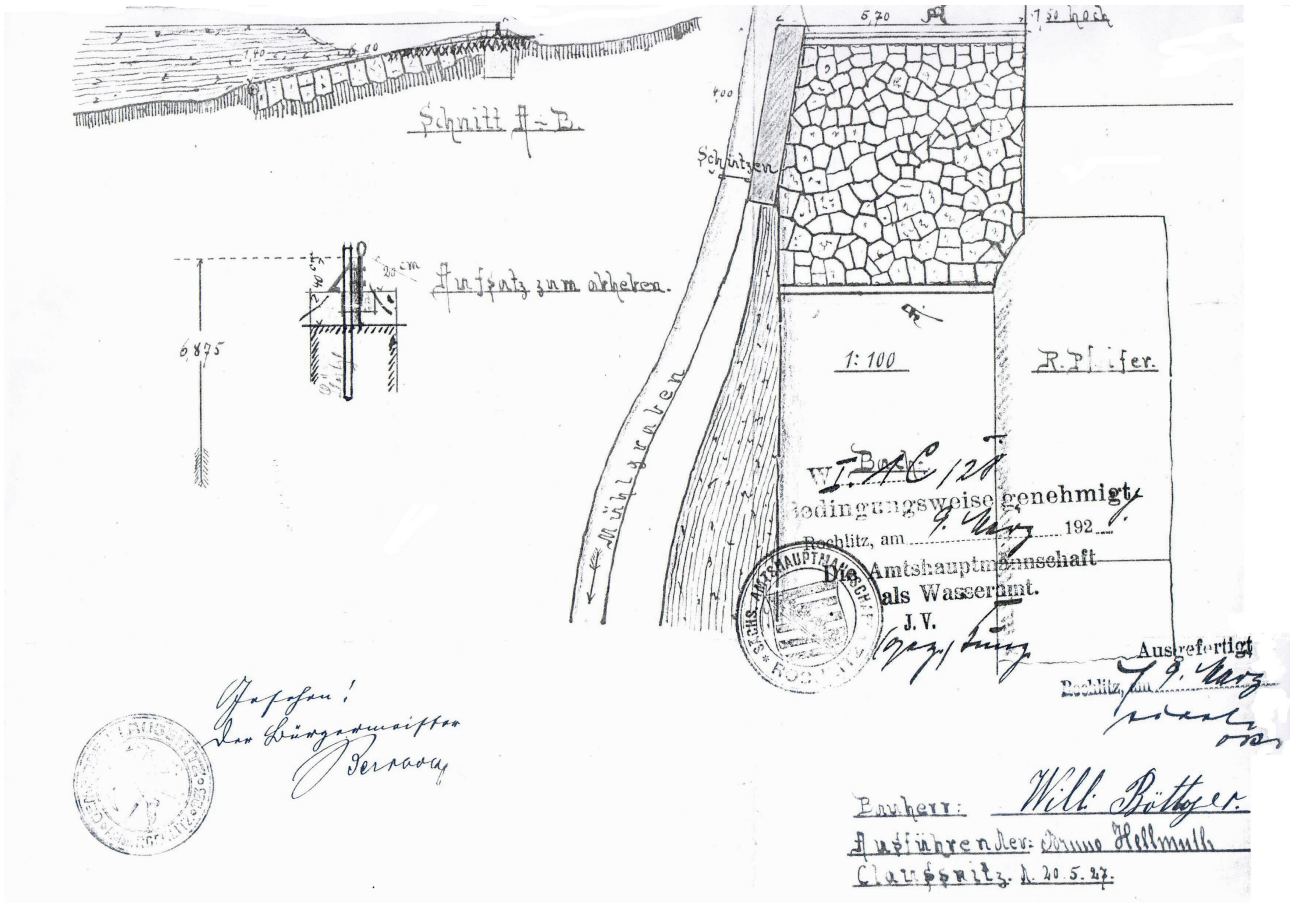 5,70
1,50 hoch
1,40
6,00
4,00
Schnitt A-B.
Schützen
20 cm
Aufsatz zum abheben.
0,40
6,875
1:100
R. Pfeifer.
Mühlgraben
Bach.
W
bedingungsweise genehmigt
Rochlitz, am 9. März 192
Die Amtshauptmannschaft
als Wasseramt.
J. V.
SÄCHS. AMTSHAUPTMANNSCHAFT ROCHLITZ
Ausgefertigt
Rochlitz, am 9. März
Gesehen!
Der Bürgermeister
Bauherr: Willi Böttger.
Ausführender: Bruno Hellmuth
Claussnitz. d. 20.5.27.